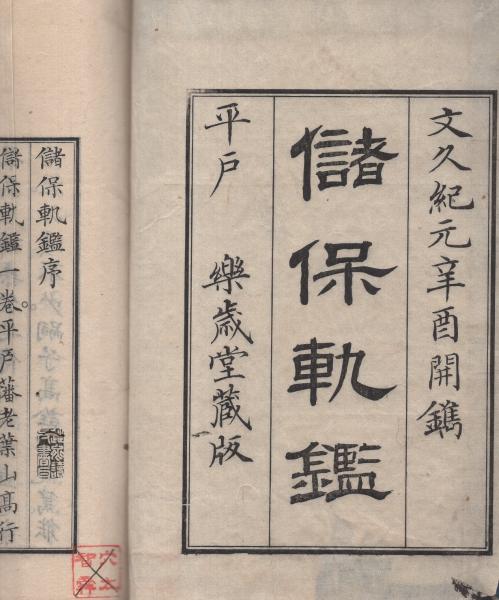 文久紀元辛酉開鐫
儲保軌鑑
平戶 樂歲堂藏版
儲保軌鑑序
儲保軌鑑一卷。平戶藩老葉山高行